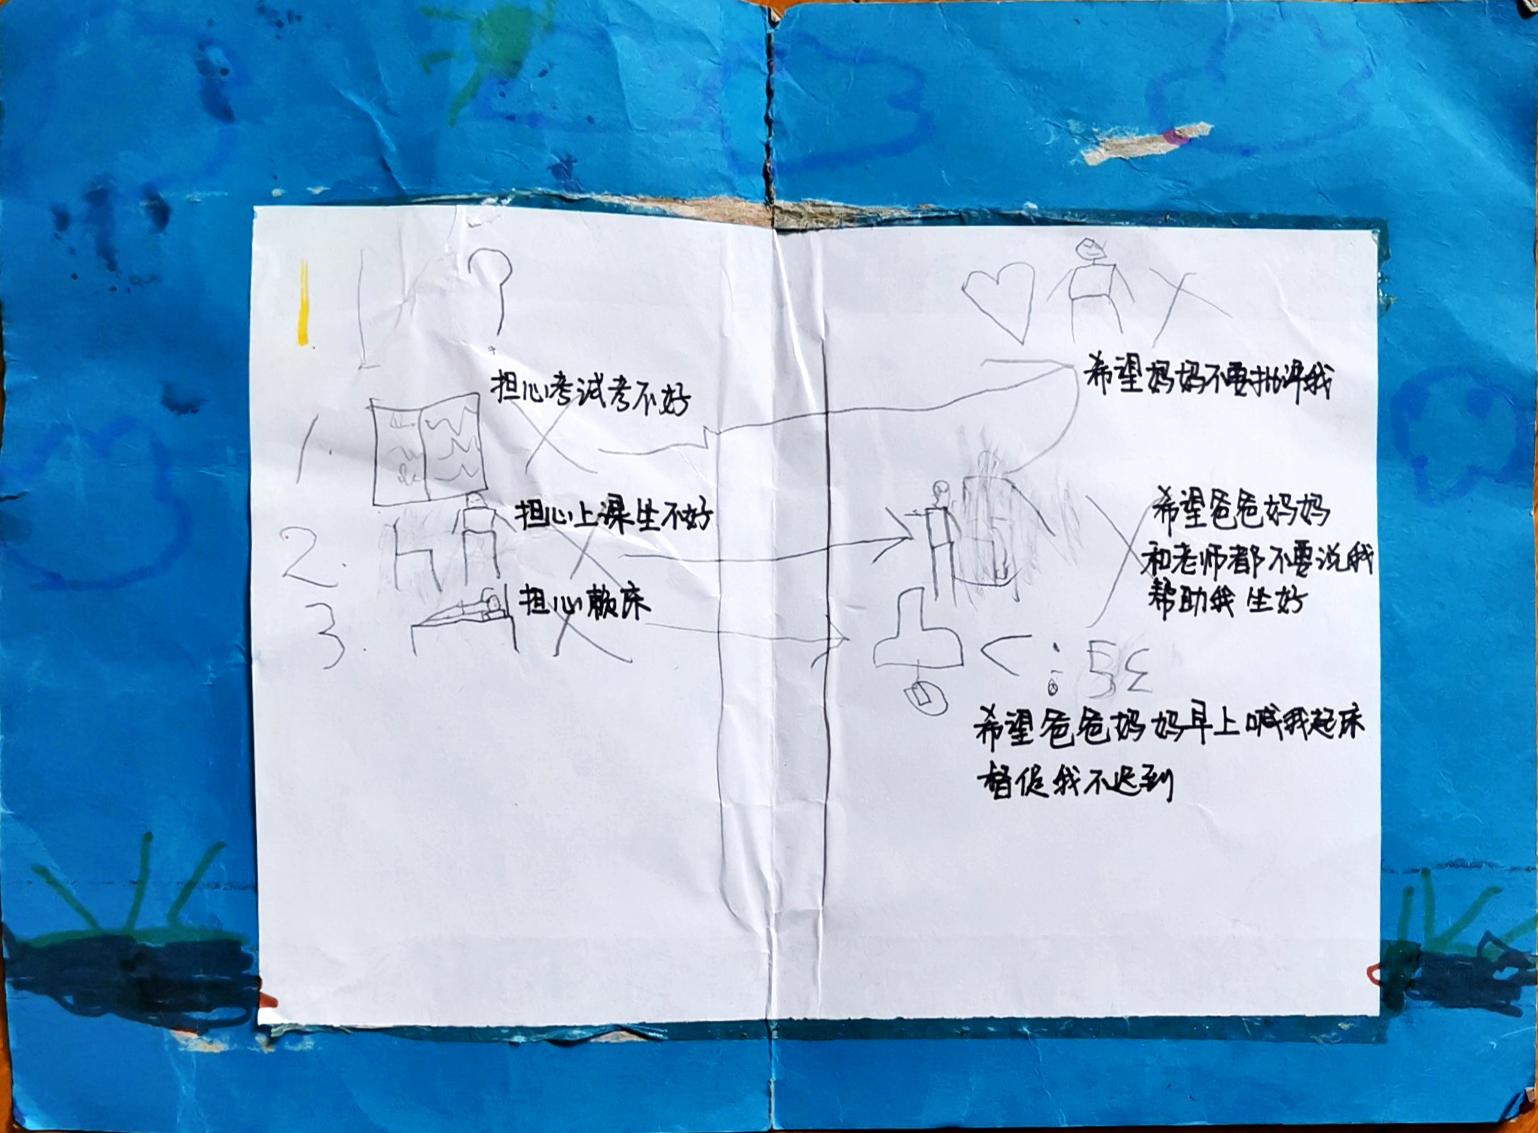 ?
担心考试考不好
1.
担心上课坐不好
2.
担心赖床
3.
希望妈妈不要批评我
希望爸爸妈妈
和老师都不要说我
帮助我坐好
希望爸爸妈妈早上喊我起床
督促我不迟到